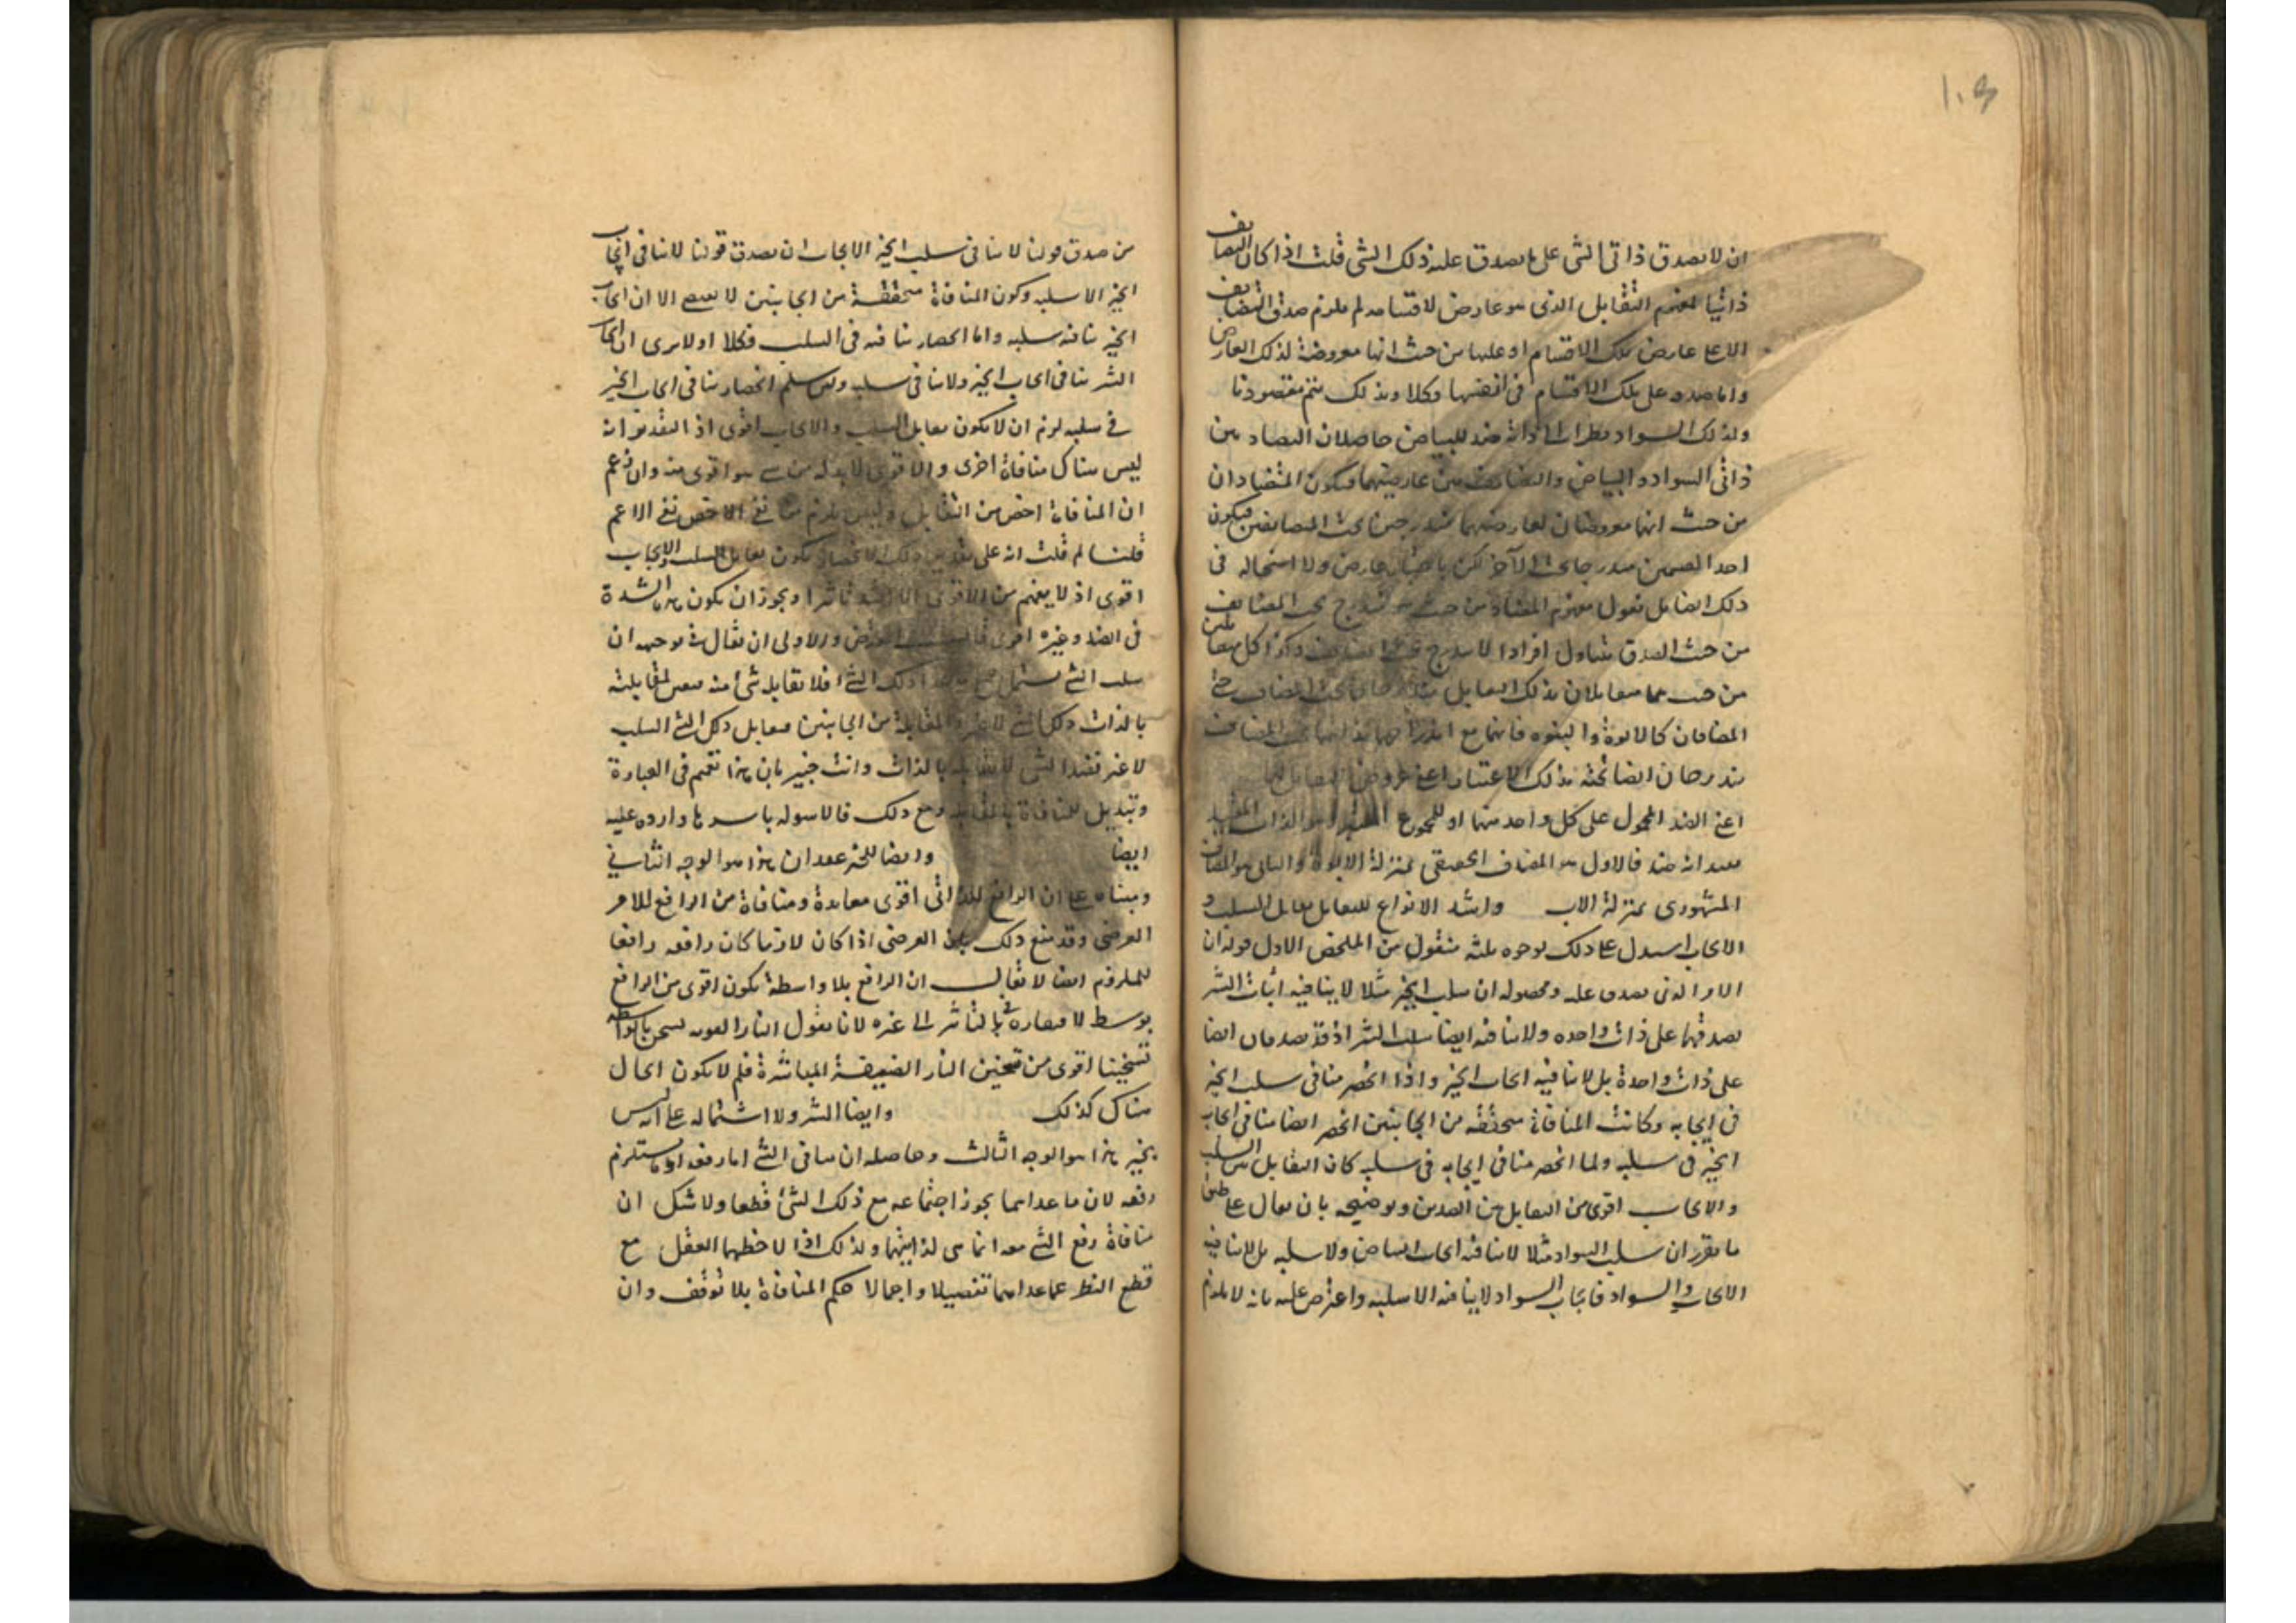 ١٠٣
ان لا يصدق ذاتى الشى على ما يصدق عليه ذلك الشى قلت اذا كان التضايف
ذاتيا لمفهوم التقابل الذى هو عارض لاقسامه لم يلزم صدق التضايف
الا على عارض تلك الاقسام او عليها من حيث انها معروضة لذلك العارض
واما صدقه على تلك الاقسام فى انفسها فكلا وبذلك يتم مقصودنا
ولذلك السواد نظرا الى ذاته ضد للبياض حاصلان التضاد بين
ذاتى السواد والبياض والتضايف بين عارضيهما فيكون المتضادان
من حيث انهما معروضان لعارضيهما مندرجين تحت المتضايفين فيكون
احد القسمين مندرجا تحت الآخر لكن باعتبار عارض ولا استحالة فى
ذلك ايضا بل نقول مفهوم المضاد من حيث هو مندرج تحت المضايف
من حيث الصدق متناول افرادا لا يندرج تحت المضايف وكذا كل متقابلين
من حيث هما متقابلان بذلك التقابل مندرجان تحت المضاف حتى
المضافان كالابوة والبنوة فانهما مع اندراجهما بذاتيهما تحت المضاف
يندرجان ايضا تحته بذلك الاعتبار اعنى عروض التقابل لهما
اعنى الضد المحمول على كل واحد منهما او للمجموع الذات المقيد
بقيد انه ضد فالاول هو المضاف الحقيقى بمنزلة الابوة والثانى هو المضاف
المشهورى بمنزلة الاب واشد الانواع للتقابل تقابل السلب و
الايجاب استدل على ذلك بوجوه ثلثة منقول من الملخص الاول قوله ان
الامر الذى يصدق عليه ومحصوله ان سلب الخير مثلا لا ينافيه اثبات الشر
لصدقهما على ذات واحدة ولا ينافيه ايضا سلب الشر اذ قد يصدقان ايضا
على ذات واحدة بل لا ينافيه ايجاب الخير واذا انحصر منافى سلب الخير
فى ايجابه وكانت المنافاة متحققة من الجانبين انحصر ايضا منافى ايجاب
الخير فى سلبه ولما انحصر منافى ايجابه فى سلبه كان التقابل بين السلب
والايجاب اقوى من التقابل بين الضدين وتوضيحه بان يقال على طبق
ما تقرر ان سلب السواد مثلا لا ينافيه ايجاب البياض ولا سلبه بل لا ينافيه
الايجاب السواد فايجاب السواد لا ينافيه الا سلبه واعترض عليه بانه لا يلزم
من صدق قولنا لا ينافى سلب الخير الا ايجابه ان يصدق قولنا لا ينافى ايجاب
الخير الا سلبه وكون المنافاة متحققة من الجانبين لا يقتضى الا ان ايجاب
الخير ينافيه سلبه واما انحصار منافيه فى السلب فكلا او لا يرى ان ايجاب
الشر ينافى ايجاب الخير ولا ينافى سلبه ولئن سلم انحصار منافى ايجاب الخير
فى سلبه لزم ان لا يكون تقابل السلب والايجاب اقوى اذ التقدير انه
ليس هناك منافاة اخرى والاقوى لا بد له من شى هو اقوى منه وان زعم
ان المنافاة اخص من التقابل وليس يلزم من نفى الاخص نفى الاعم
قلنا لم قلت انه على تقدير ذلك الانحصار يكون تقابل السلب والايجاب
اقوى اذ لا يفهم من الاقوى الا اشد تأثيرا ويجوز ان يكون هذا الشدة
فى الضد وغيره اقوى والاولى ان يقال فى توجيهه ان
سلب الشى يشتمل جميع ما عدا ذلك الشى فلا يقابله شى منه فيقتضى لمقابلته
بالذات ذلك الشى لا غير والمقابلة من الجانبين فيقابل ذلك الشى السلب
لا غير فضد الشى لا يقابله بالذات وانت خبير بان هذا تعميم فى العبارة
وتبديل للمنافاة بالمقابلة ومع ذلك فالاسولة باسرها واردة عليه
ايضا وايضا للخير عقدان هذا هو الوجه الثانى
ومبناه على ان الرافع للذاتى اقوى معاندة ومنافاة من الرافع للامر
العرضى وقد منع ذلك بان العرضى اذا كان لازما كان رافعه رافعا
للملزوم ايضا لا يقال ان الرافع بلا واسطة يكون اقوى من الرافع
بوسط لافتقاره فى التاثير الى غيره لانا نقول النار القوية تسخن بالواسطة
تسخينا اقوى من تسخين النار الضعيفة المباشرة فلم لا يكون الحال
هناك كذلك وايضا الشر ولا اشتماله على انه ليس
بخير هذا هو الوجه الثالث وحاصله ان منافى الشى اما رفعه او ما يستلزم
رفعه لان ما عداهما يجوز اجتماعه مع ذلك الشى قطعا ولا شك ان
منافاة رفع الشى معه انما هى لذاتيهما ولذلك اذا لاحظهما العقل مع
قطع النظر عما عداهما تفصيلا واجمالا حكم المنافاة بلا توقف وان